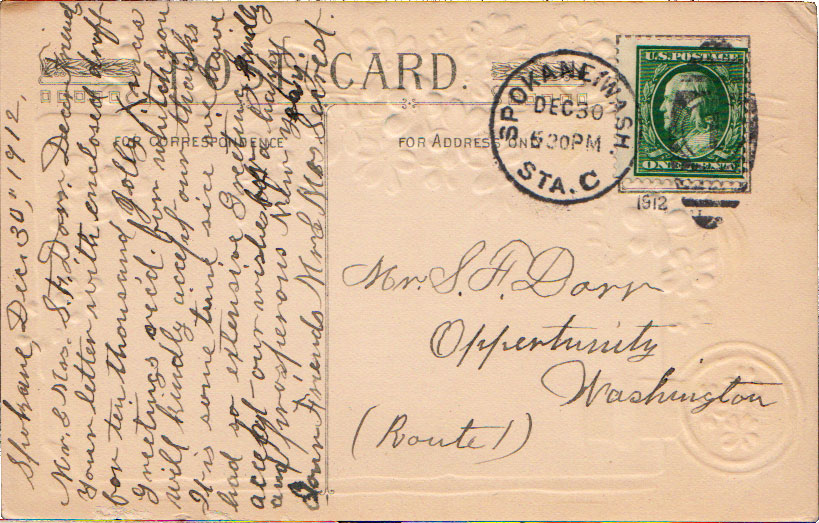 POST CARD.
FOR CORRESPONDENCE
FOR ADDRESS ONLY
SPOKANE, WASH.
DEC 30
5 30 PM
STA. C
1912
U.S. POSTAGE
ONE CENT
Spokane, Dec. 30," 1912,
Mr. & Mrs. S. F. Dorr Dear friend
Your letter with enclosed draft
for ten thousand Jolly Xmas
Greetings rec'd. for whitch you
will kindly accept our thanks
It is some time sice we have
had so extensive Greeting kindly
accept our wishes for a happy
and prosperous New year
your Friends Mr & Mrs Secrest.
Mr. S. F. Dorr
Oppertunity
Washington
(Route 1)